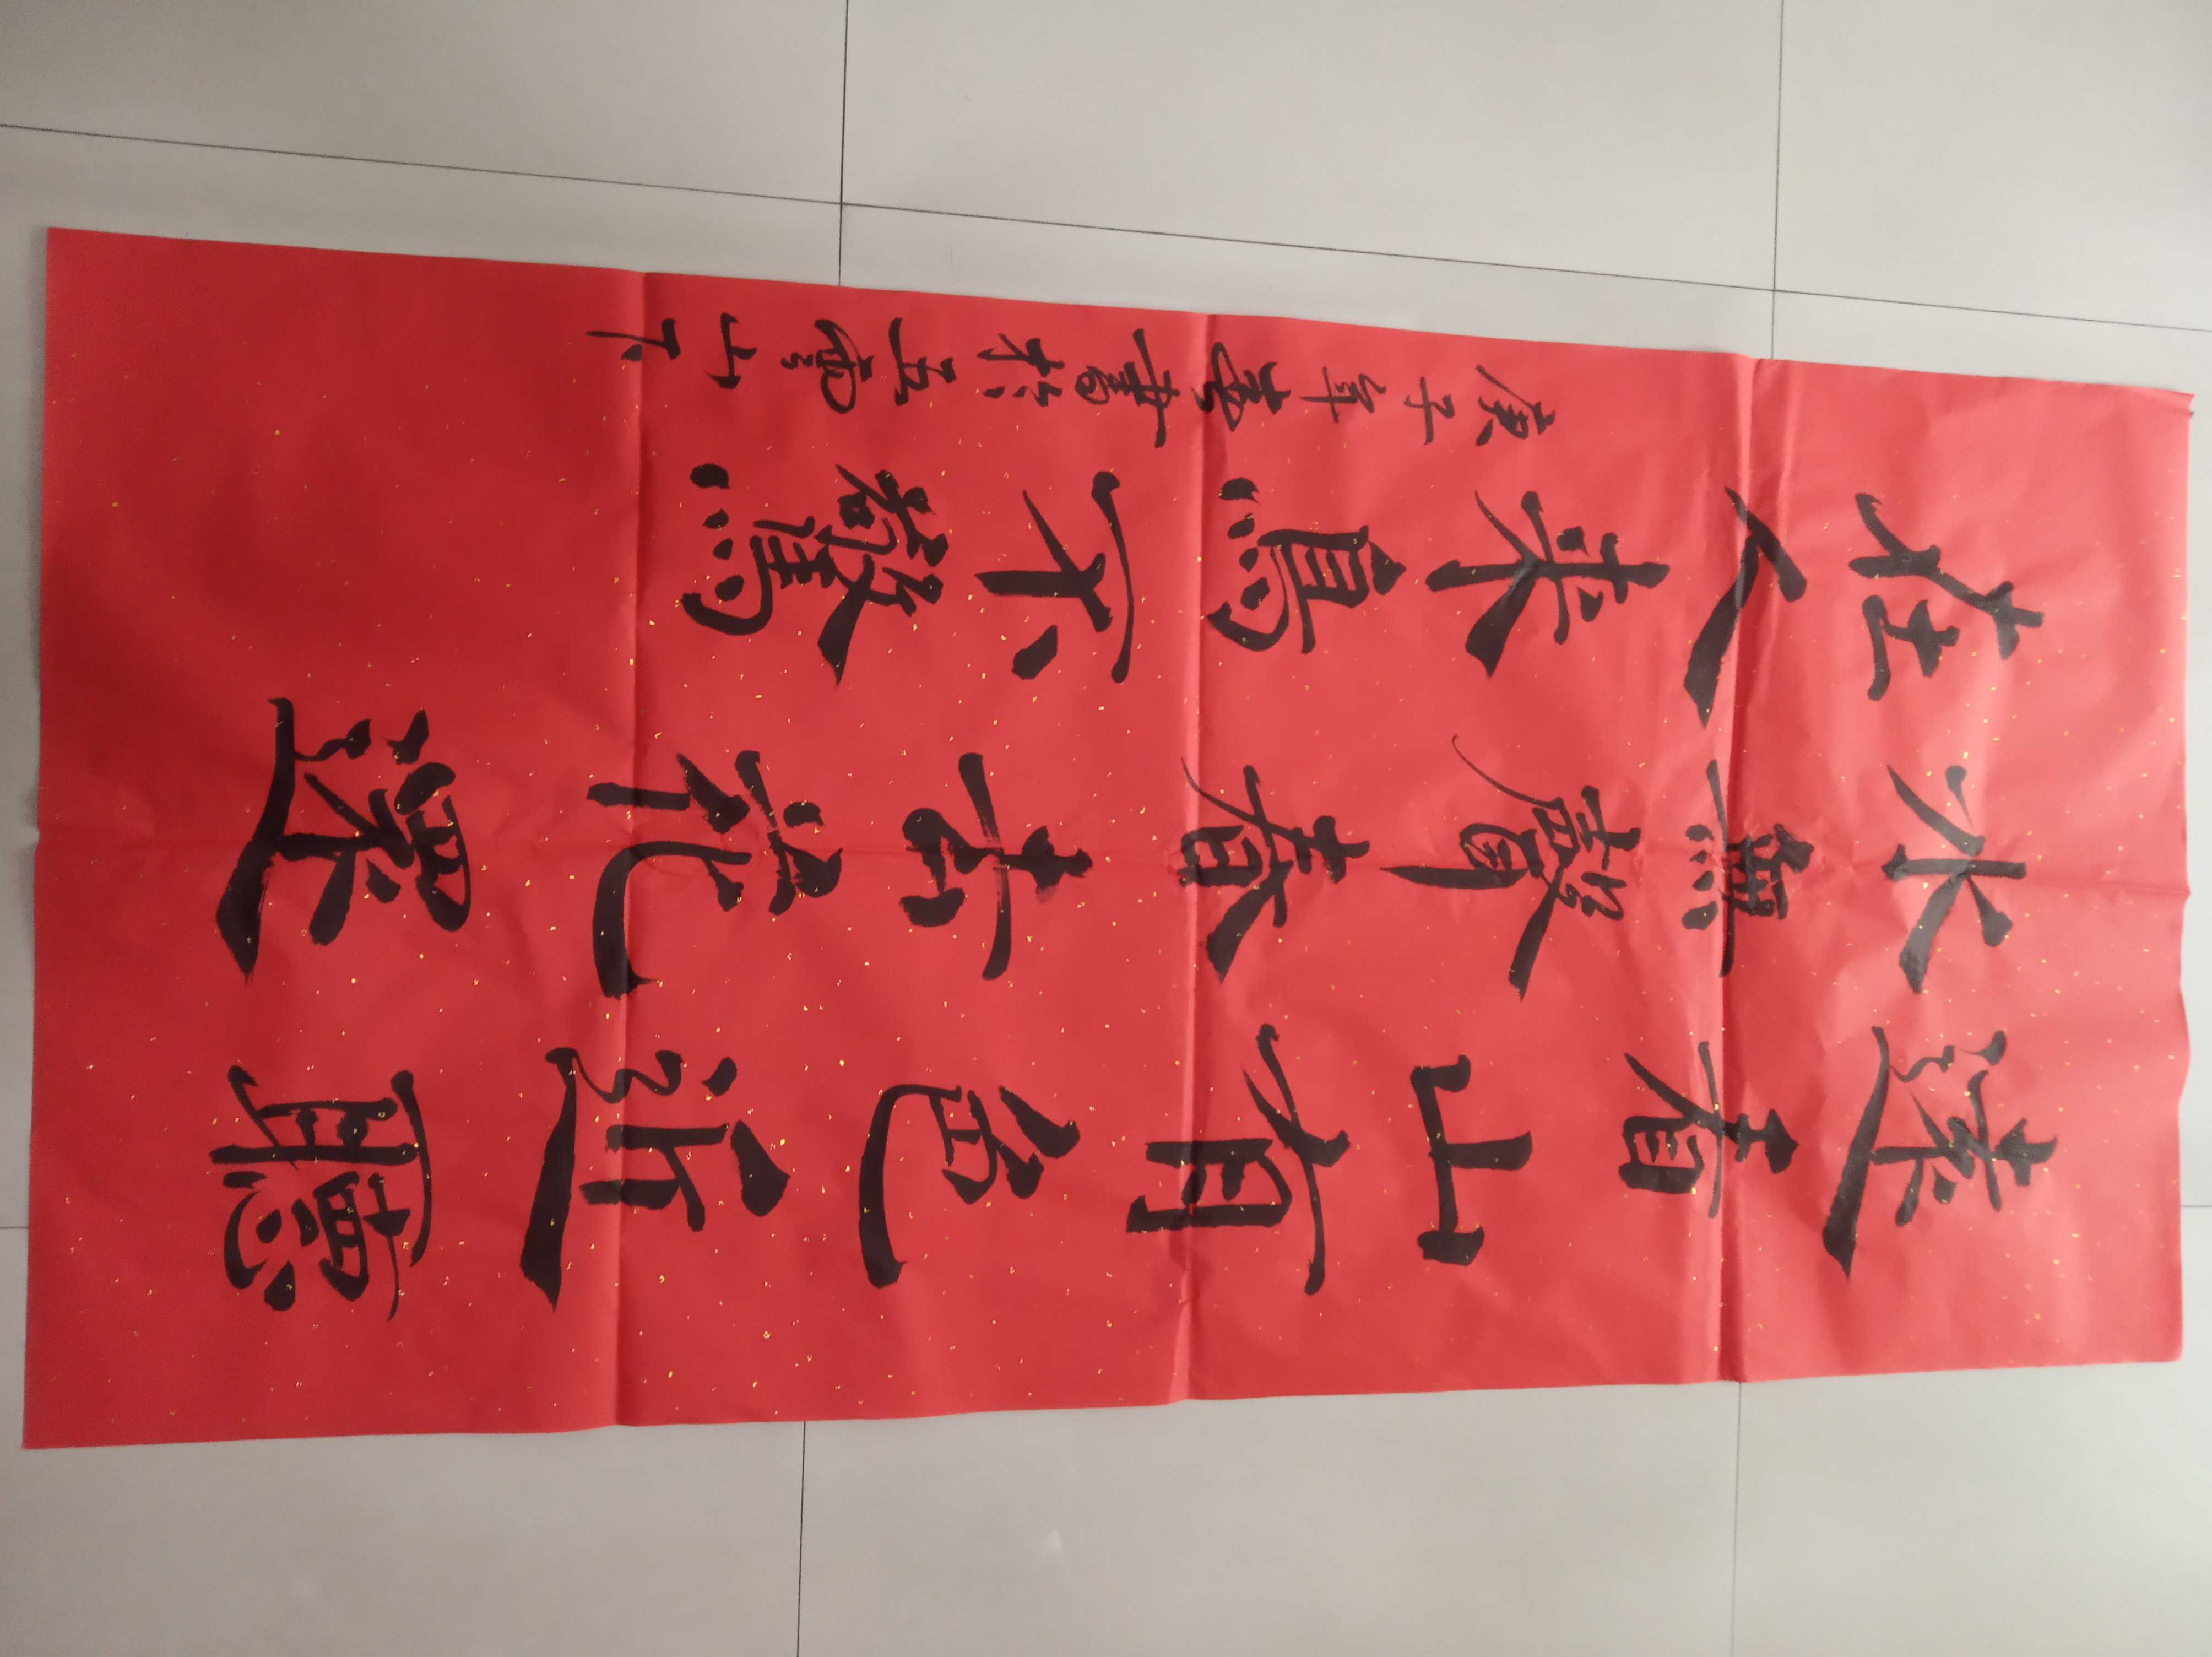 遠看山有色近聽
水無聲春去花還
在人来鳥不驚
庚子年 書於五雲山下